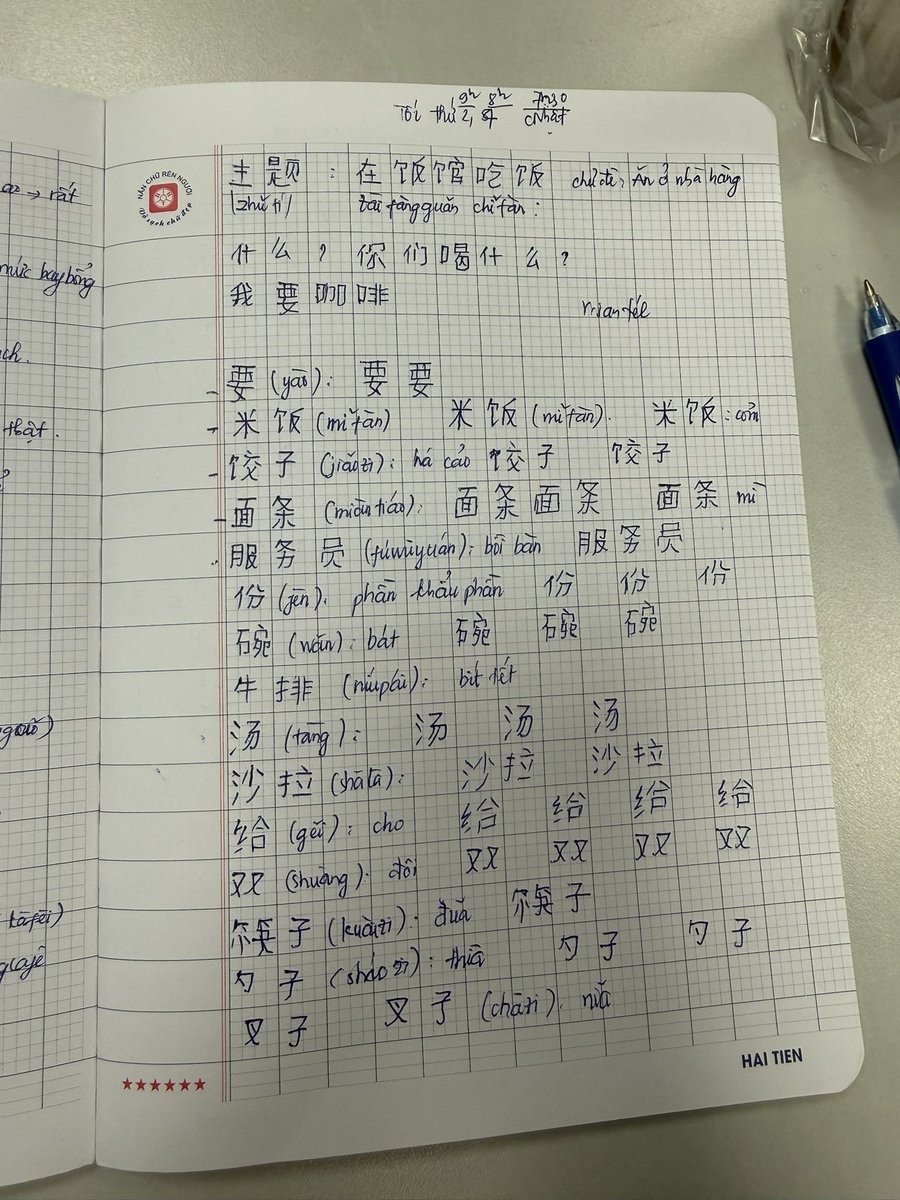 Tối thứ 2, 5
9h 8h 7h30
CNhật
NẮN CHỮ RÈN NGƯỜI
Vở sạch chữ đẹp
主题 : 在饭馆吃饭 chủ đề: Ăn ở nhà hàng
/zhǔ tí/ zài fàngguǎn chīfàn:
什么? 你们喝什么?
我要咖啡
mian tiế
- 要 (yào): 要 要
- 米饭 (mǐfàn) 米饭 (mǐfàn). 米饭: cơm
- 饺子 (jiǎozi): há cảo 饺子 饺子
- 面条 (miàntiáo): 面条 面条 面条 mì
. 服务员 (fúwùyuán): bồi bàn 服务员
份 (fèn): phần khẩu phần 份 份 份
碗 (wǎn): bát 碗 碗 碗
牛排 (niúpái): bít tết
汤 (tāng): 汤 汤 汤
沙拉 (shālā): 沙拉 沙拉
给 (gěi): cho 给 给 给 给
双 (shuāng): đôi 双 双 双 双
筷子 (kuàizi): đũa 筷子
勺子 (sháozi): thìa 勺子 勺子
叉子 叉子 (chāzi): nĩa
HAI TIEN
→ rất
bay bổng
ch.
thật.